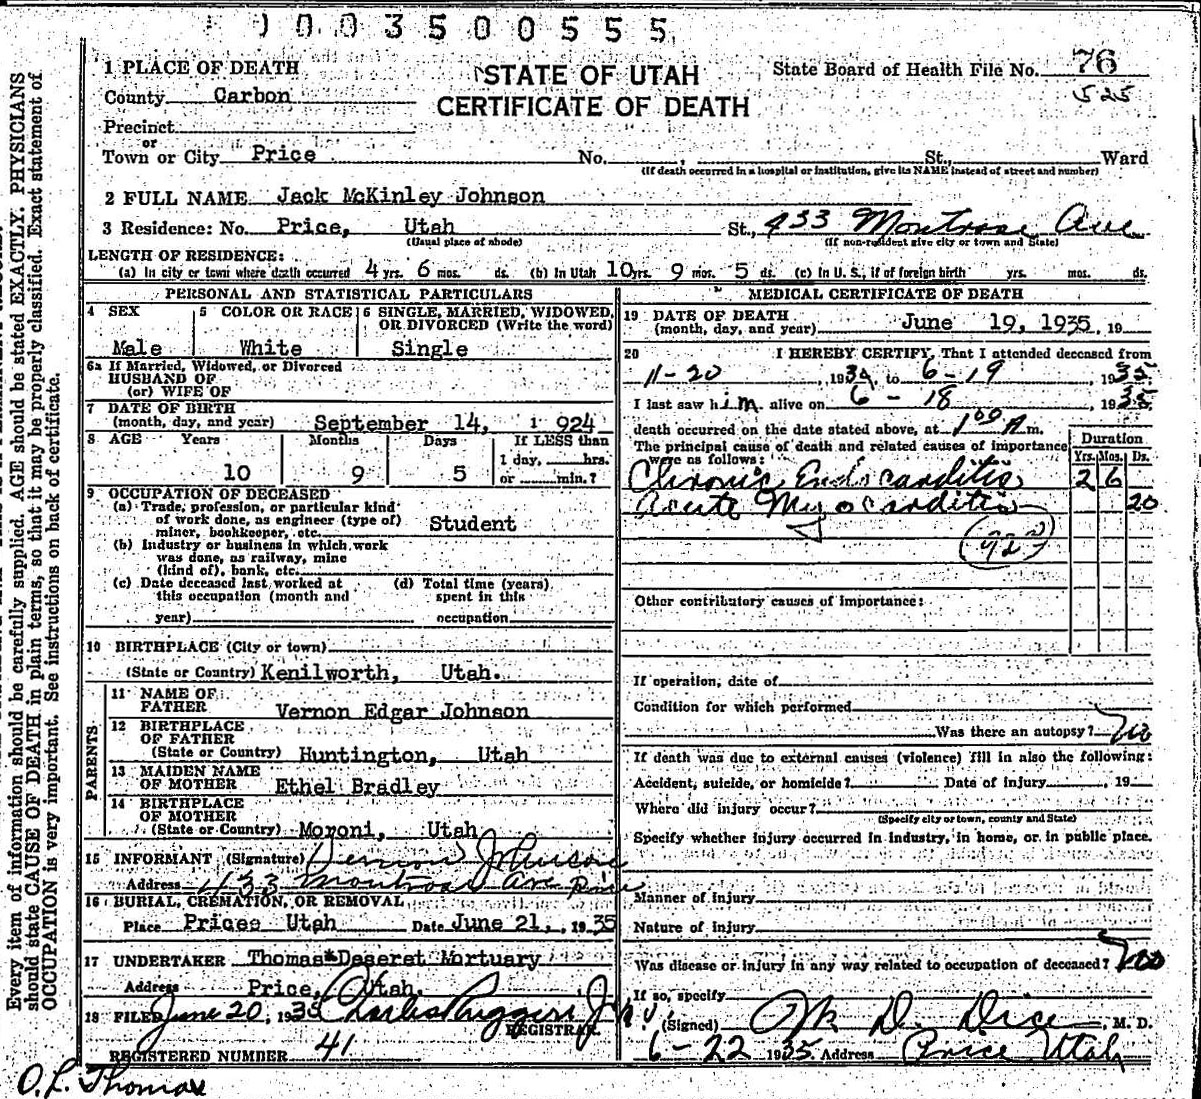 1003500555
1 PLACE OF DEATH
STATE OF UTAH
CERTIFICATE OF DEATH
State Board of Health File No. 76
525
County Carbon
Precinct
or
Town or City Price No. , St., Ward
(If death occurred in a hospital or institution, give its NAME instead of street and number)
2 FULL NAME Jack McKinley Johnson
3 Residence: No. Price, Utah St., 433 Montrose Ave
(Usual place of abode) (If non-resident give city or town and State)
LENGTH OF RESIDENCE:
(a) In city or town where death occurred 4 yrs. 6 mos. ds. (b) In Utah 10 yrs. 9 mos. 5 ds. (c) In U. S., if of foreign birth yrs. mos. ds.
PERSONAL AND STATISTICAL PARTICULARS
4 SEX
Male
5 COLOR OR RACE
White
6 SINGLE, MARRIED, WIDOWED, OR DIVORCED (Write the word)
Single
6a If Married, Widowed, or Divorced
HUSBAND OF
(or) WIFE OF
7 DATE OF BIRTH
(month, day, and year) September 14, 1924.
8 AGE Years Months Days If LESS than
10 9 5 1 day, hrs.
or min.?
9 OCCUPATION OF DECEASED
(a) Trade, profession, or particular kind
of work done, as engineer (type of)
miner, bookkeeper, etc. Student
(b) Industry or business in which work
was done, as railway, mine
(kind of), bank, etc.
(c) Date deceased last worked at
this occupation (month and
year)
(d) Total time (years)
spent in this
occupation
10 BIRTHPLACE (City or town)
(State or Country) Kenilworth, Utah.
PARENTS
11 NAME OF
FATHER Vernon Edgar Johnson
12 BIRTHPLACE
OF FATHER
(State or Country) Huntington, Utah
13 MAIDEN NAME
OF MOTHER Ethel Bradley
14 BIRTHPLACE
OF MOTHER
(State or Country) Moroni, Utah
15 INFORMANT (Signature) Vernon Johnson
Address 433 Montrose Ave Price
16 BURIAL, CREMATION, OR REMOVAL
Place Pricee Utah Date June 21, , 1935
17 UNDERTAKER Thomas*Deseret Mortuary
Address Price, Utah.
18 FILED June 20, 1935 Charles Ruggeri Jr
REGISTRAR
REGISTERED NUMBER 41
O. L. Thomas
MEDICAL CERTIFICATE OF DEATH
19 DATE OF DEATH
(month, day, and year) June 19, 1935, 19
20 I HEREBY CERTIFY, That I attended deceased from
11-20 , 1934 to 6-19 , 1935.
I last saw him alive on 6-18 , 1935
death occurred on the date stated above, at 1 00 A m.
The principal cause of death and related causes of importance
were as follows:
Duration
Yrs. Mos. Ds.
Chronic Endocarditis 2 6
Acute Myocarditis 20
Other contributory causes of importance:
If operation, date of
Condition for which performed
Was there an autopsy? No
If death was due to external causes (violence) fill in also the following:
Accident, suicide, or homicide? Date of injury , 19
Where did injury occur?
(Specify city or town, county and State)
Specify whether injury occurred in industry, in home, or in public place.
Manner of injury
Nature of injury
Was disease or injury in any way related to occupation of deceased? No
If so, specify
(Signed) D. Dice , M. D.
6-22 1935 Address Price Utah
Every item of information should be carefully supplied. AGE should be stated EXACTLY. PHYSICIANS
should state CAUSE OF DEATH in plain terms, so that it may be properly classified. Exact statement of
OCCUPATION is very important. See instructions on back of certificate.